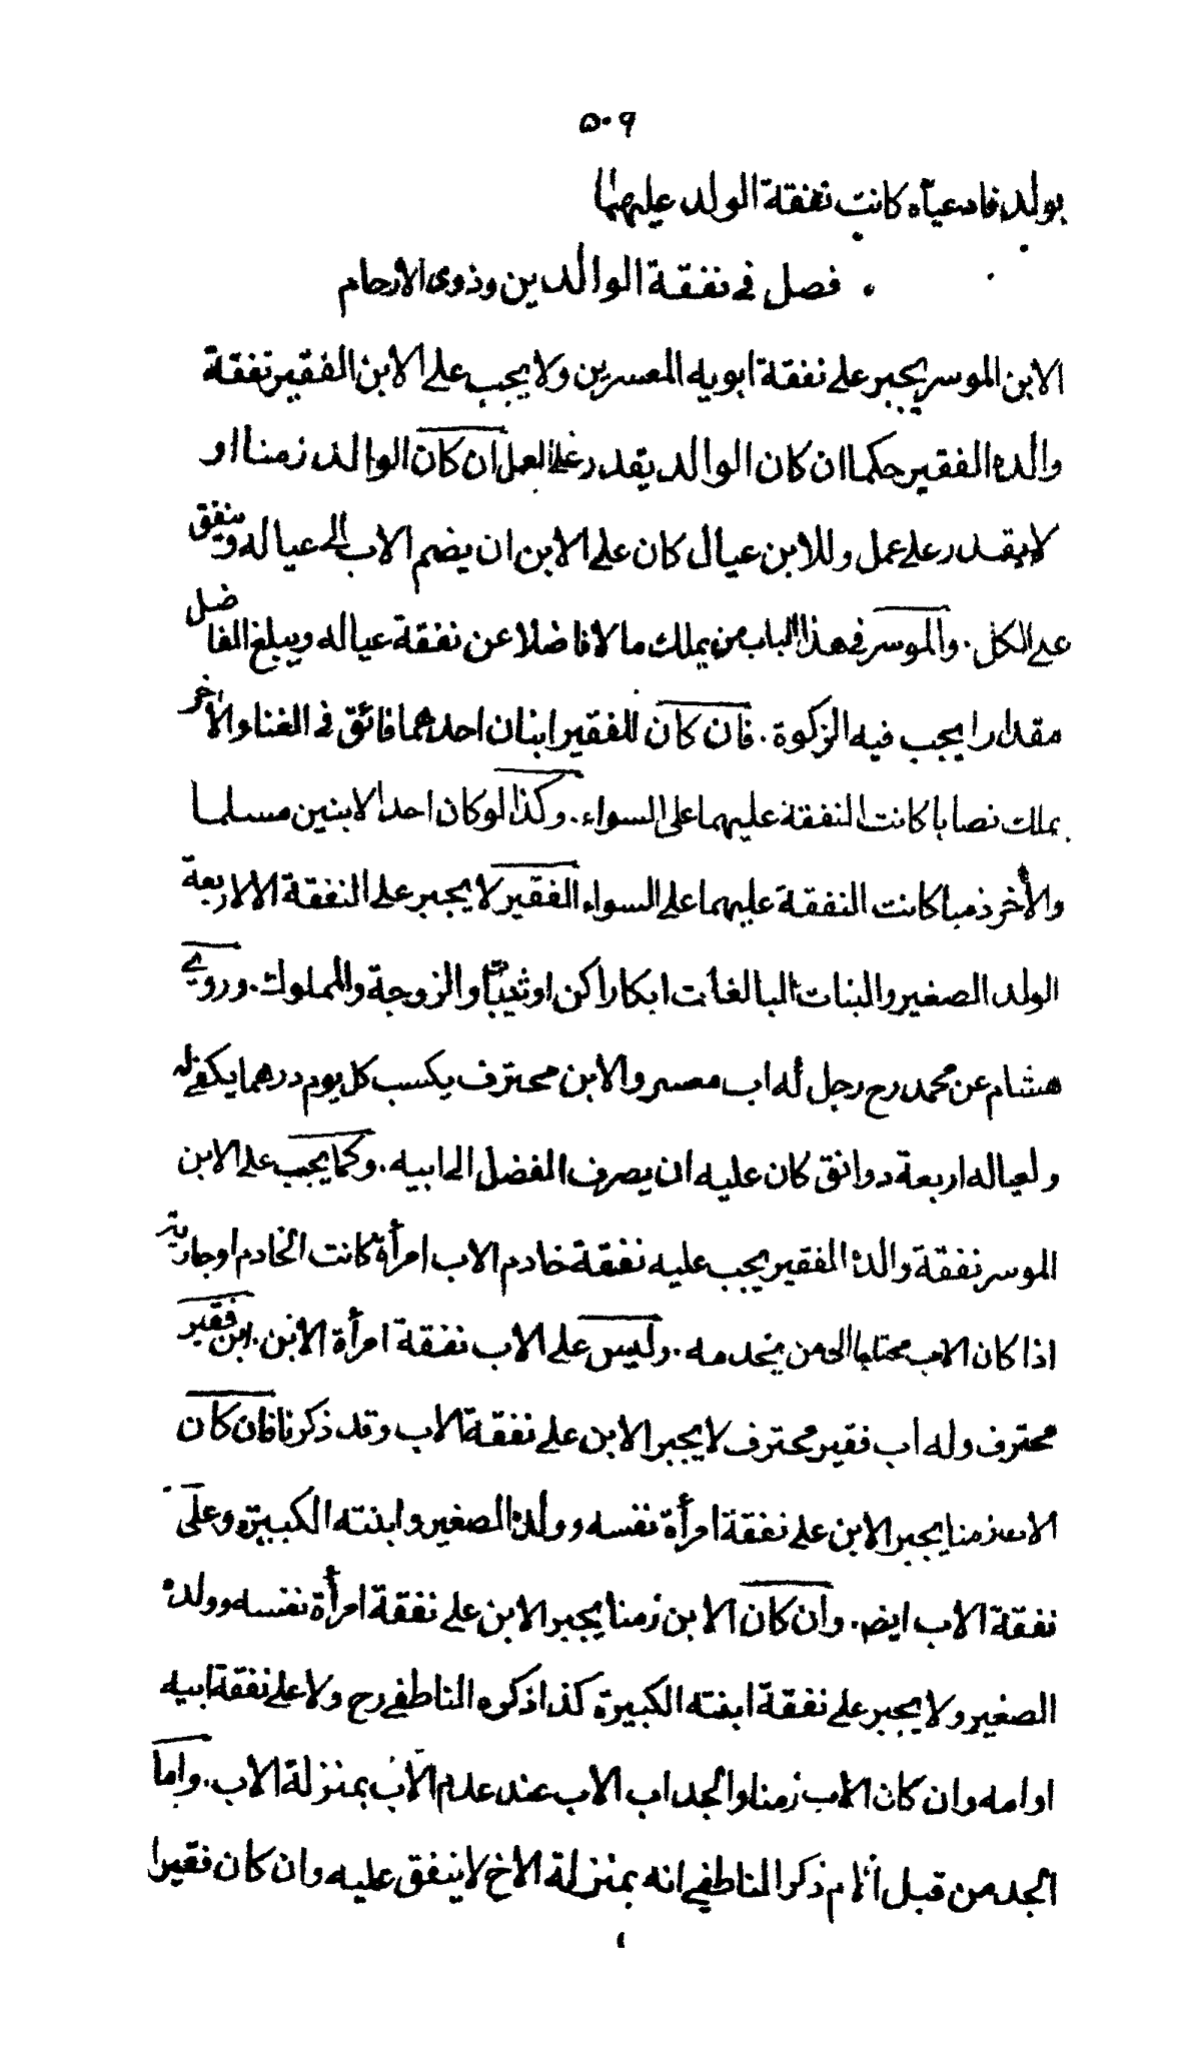 ٥٠٩
بولد فادعياه كانت نفقة الولد عليهما
فصل في نفقة الوالدين وذوى الارحام
الابن الموسر يجبر على نفقة ابويه المعسرين ولا يجب على الابن الفقير نفقة
والده الفقير حكما ان كان الوالد يقدر على العمل ان كان الوالد زمنا او
لا يقدر على عمل وللابن عيال كان على الابن ان يضم الاب الى عياله وينفق
على الكل . والموسر في هذا الباب من يملك مالا فاضلا عن نفقة عياله ويبلغ الفاضل
مقدارا يجب فيه الزكوة . فان كان للفقير ابنان احدهما فائق في الغناء والأخر
يملك نصابا كانت النفقة عليهما على السواء . وكذا لو كان احد الابنين مسلما
والأخر ذميا كانت النفقة عليهما على السواء الفقير لا يجبر على النفقة الا لاربعة
الولد الصغير والبنات البالغات ابكارا كن او ثيبا والزوجة والمملوك . وروى
هشام عن محمد رح رجل له اب معسر والابن محترف يكسب كل يوم درهما يكفى له
ولعياله اربعة دوانق كان عليه ان يصرف الفضل الى ابيه . وكما يجب على الابن
الموسر نفقة والده الفقير يجب عليه نفقة خادم الاب امرأة كانت الخادم او جارية
اذا كان الاب محتاجا الى من يخدمه . وليس على الاب نفقة امرأة الابن . ابن فقير
محترف وله اب فقير محترف لا يجبر الابن على نفقة الاب وقد ذكرنا فان كان
الاب زمنا يجبر الابن على نفقة امرأة نفسه وولده الصغير وابنته الكبيرة وعلى
نفقة الاب ايضا . وان كان الابن زمنا يجبر الابن على نفقة امرأة نفسه وولده
الصغير ولا يجبر على نفقة ابنته الكبيرة كذا ذكره الناطفى رح ولا على نفقة ابيه
او امه وان كان الاب زمنا والجد اب الاب عند عدم الاب بمنزلة الاب . واما
الجد من قبل الام ذكر الناطفي انه بمنزلة الاخ لا ينفق عليه وان كان فقيرا